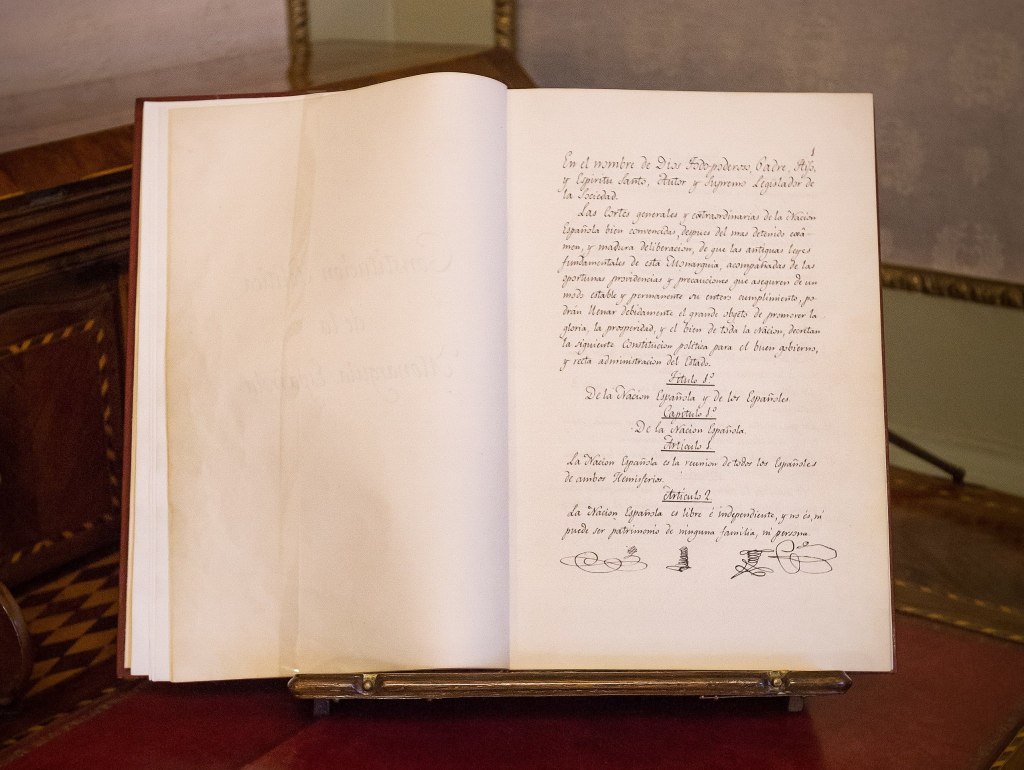 1
En el nombre de Dios Todopoderoso, Padre, Hijo,
y Espiritu Santo, Autor y Supremo Legislador de
la Sociedad.
Las Cortes generales y extraordinarias de la Nacion
Española bien convencidas, despues del mas detenido exâ-
men, y madura deliberacion, de que las antiguas leyes
fundamentales de esta Monarquia, acompañadas de las
oportunas providencias y precauciones que aseguren de un
modo estable y permanente su entero cumplimiento, po-
drán llenar debidamente el grande objeto de promover la
gloria, la prosperidad, y el bien de toda la Nacion, decretan
la siguiente Constitucion politica para el buen gobierno,
y recta administracion del Estado.
Titulo 1º
De la Nacion Española y de los Españoles
Capitulo 1º
De la Nacion Española.
Articulo 1.
La Nacion Española es la reunion de todos los Españoles
de ambos Hemisferios.
Articulo 2.
La Nacion Española es libre é independiente, y no es, ni
puede ser patrimonio de ninguna familia, ni persona.